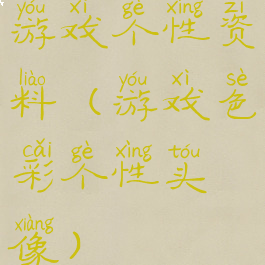 yóu xì gè xìng zī
游戏个性资
liào yóu xì sè
料(游戏色
cǎi gè xìng tóu
彩个性头
xiàng
像)